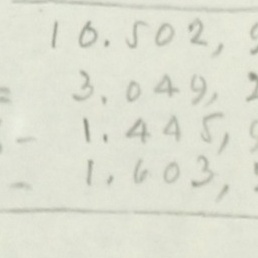 10.502,
= 3.049, 2
- 1.445,
- 1.603,